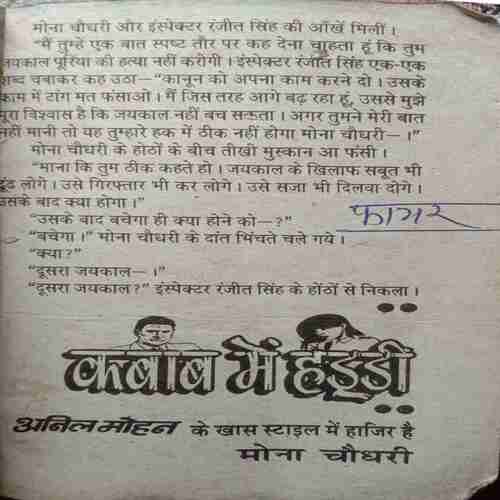 मोना चौधरी और इंस्पेक्टर रंजीत सिंह की आँखें मिलीं ।
"मैं तुम्हें एक बात स्पष्ट तौर पर कह देना चाहता हूं कि तुम
जयकाल पूरिया की हत्या नहीं करोगी । इंस्पेक्टर रंजीत सिंह एक-एक
शब्द चबाकर कह उठा—"कानून को अपना काम करने दो । उसके
काम में टांग मत फंसाओ । मैं जिस तरह आगे बढ़ रहा हूं, उससे मुझे
पूरा विश्वास है कि जयकाल नहीं बच सकता । अगर तुमने मेरी बात
नहीं मानी तो यह तुम्हारे हक में ठीक नहीं होगा मोना चौधरी—।"
मोना चौधरी के होठों के बीच तीखी मुस्कान आ फंसी ।
"माना कि तुम ठीक कहते हो । जयकाल के खिलाफ सबूत भी
ढूंढ लोगे । उसे गिरफ्तार भी कर लोगे । उसे सजा भी दिलवा दोगे ।
उसके बाद क्या होगा ।"
"उसके बाद बचेगा ही क्या होने को—?"
"बचेगा ।" मोना चौधरी के दांत भिंचते चले गये ।
"क्या?"
"दूसरा जयकाल—।"
"दूसरा जयकाल?" इंस्पेक्टर रंजीत सिंह के होंठों से निकला ।
कबाब में हड्डी
अनिल मोहन के खास स्टाइल में हाजिर है
मोना चौधरी